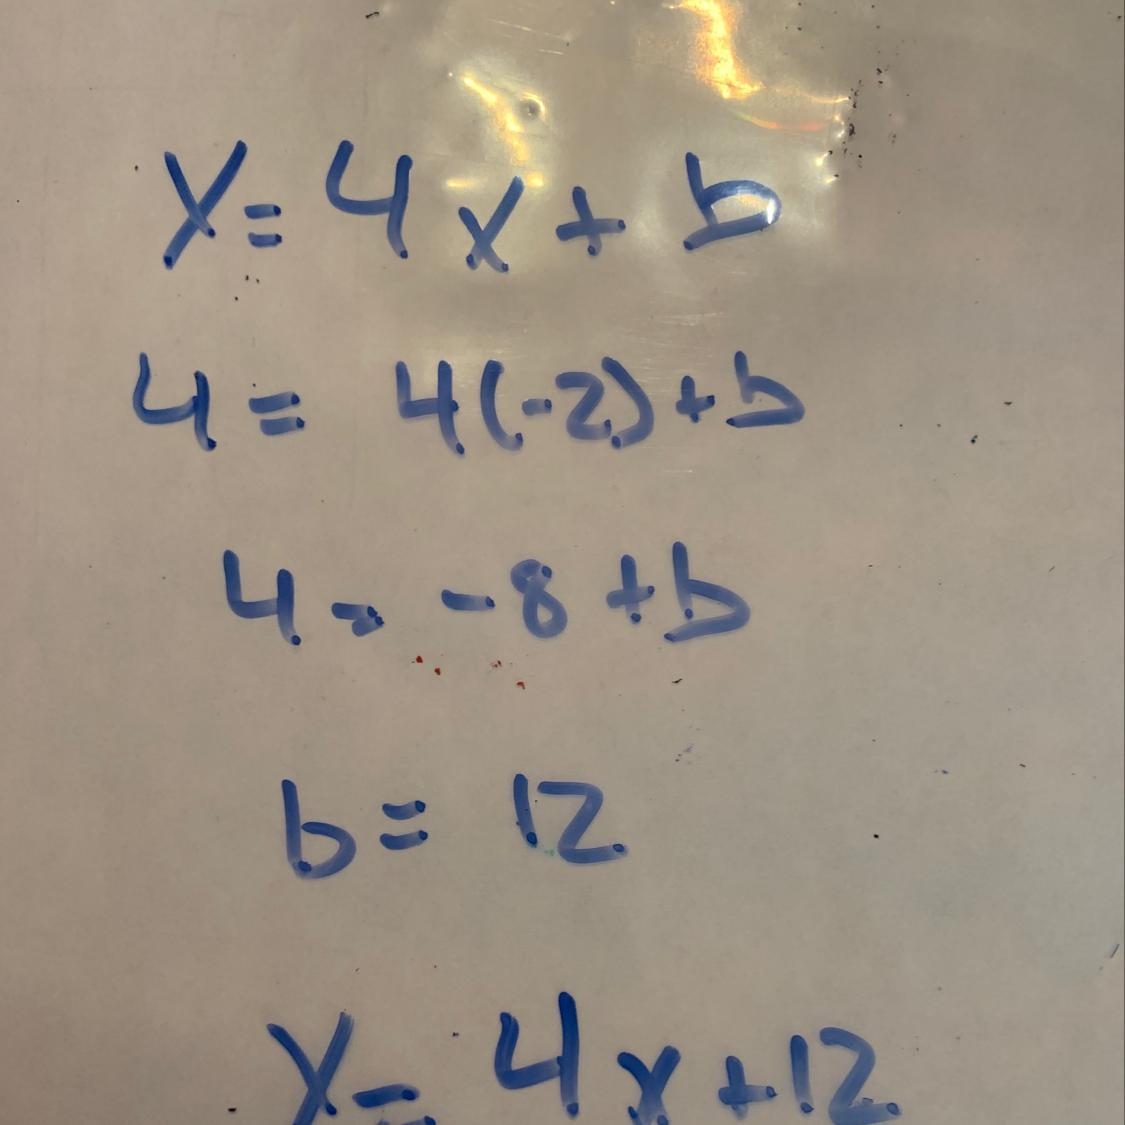 y = 4x + b
4 = 4(-2) + b
4 = -8 + b
b = 12
y = 4x + 12